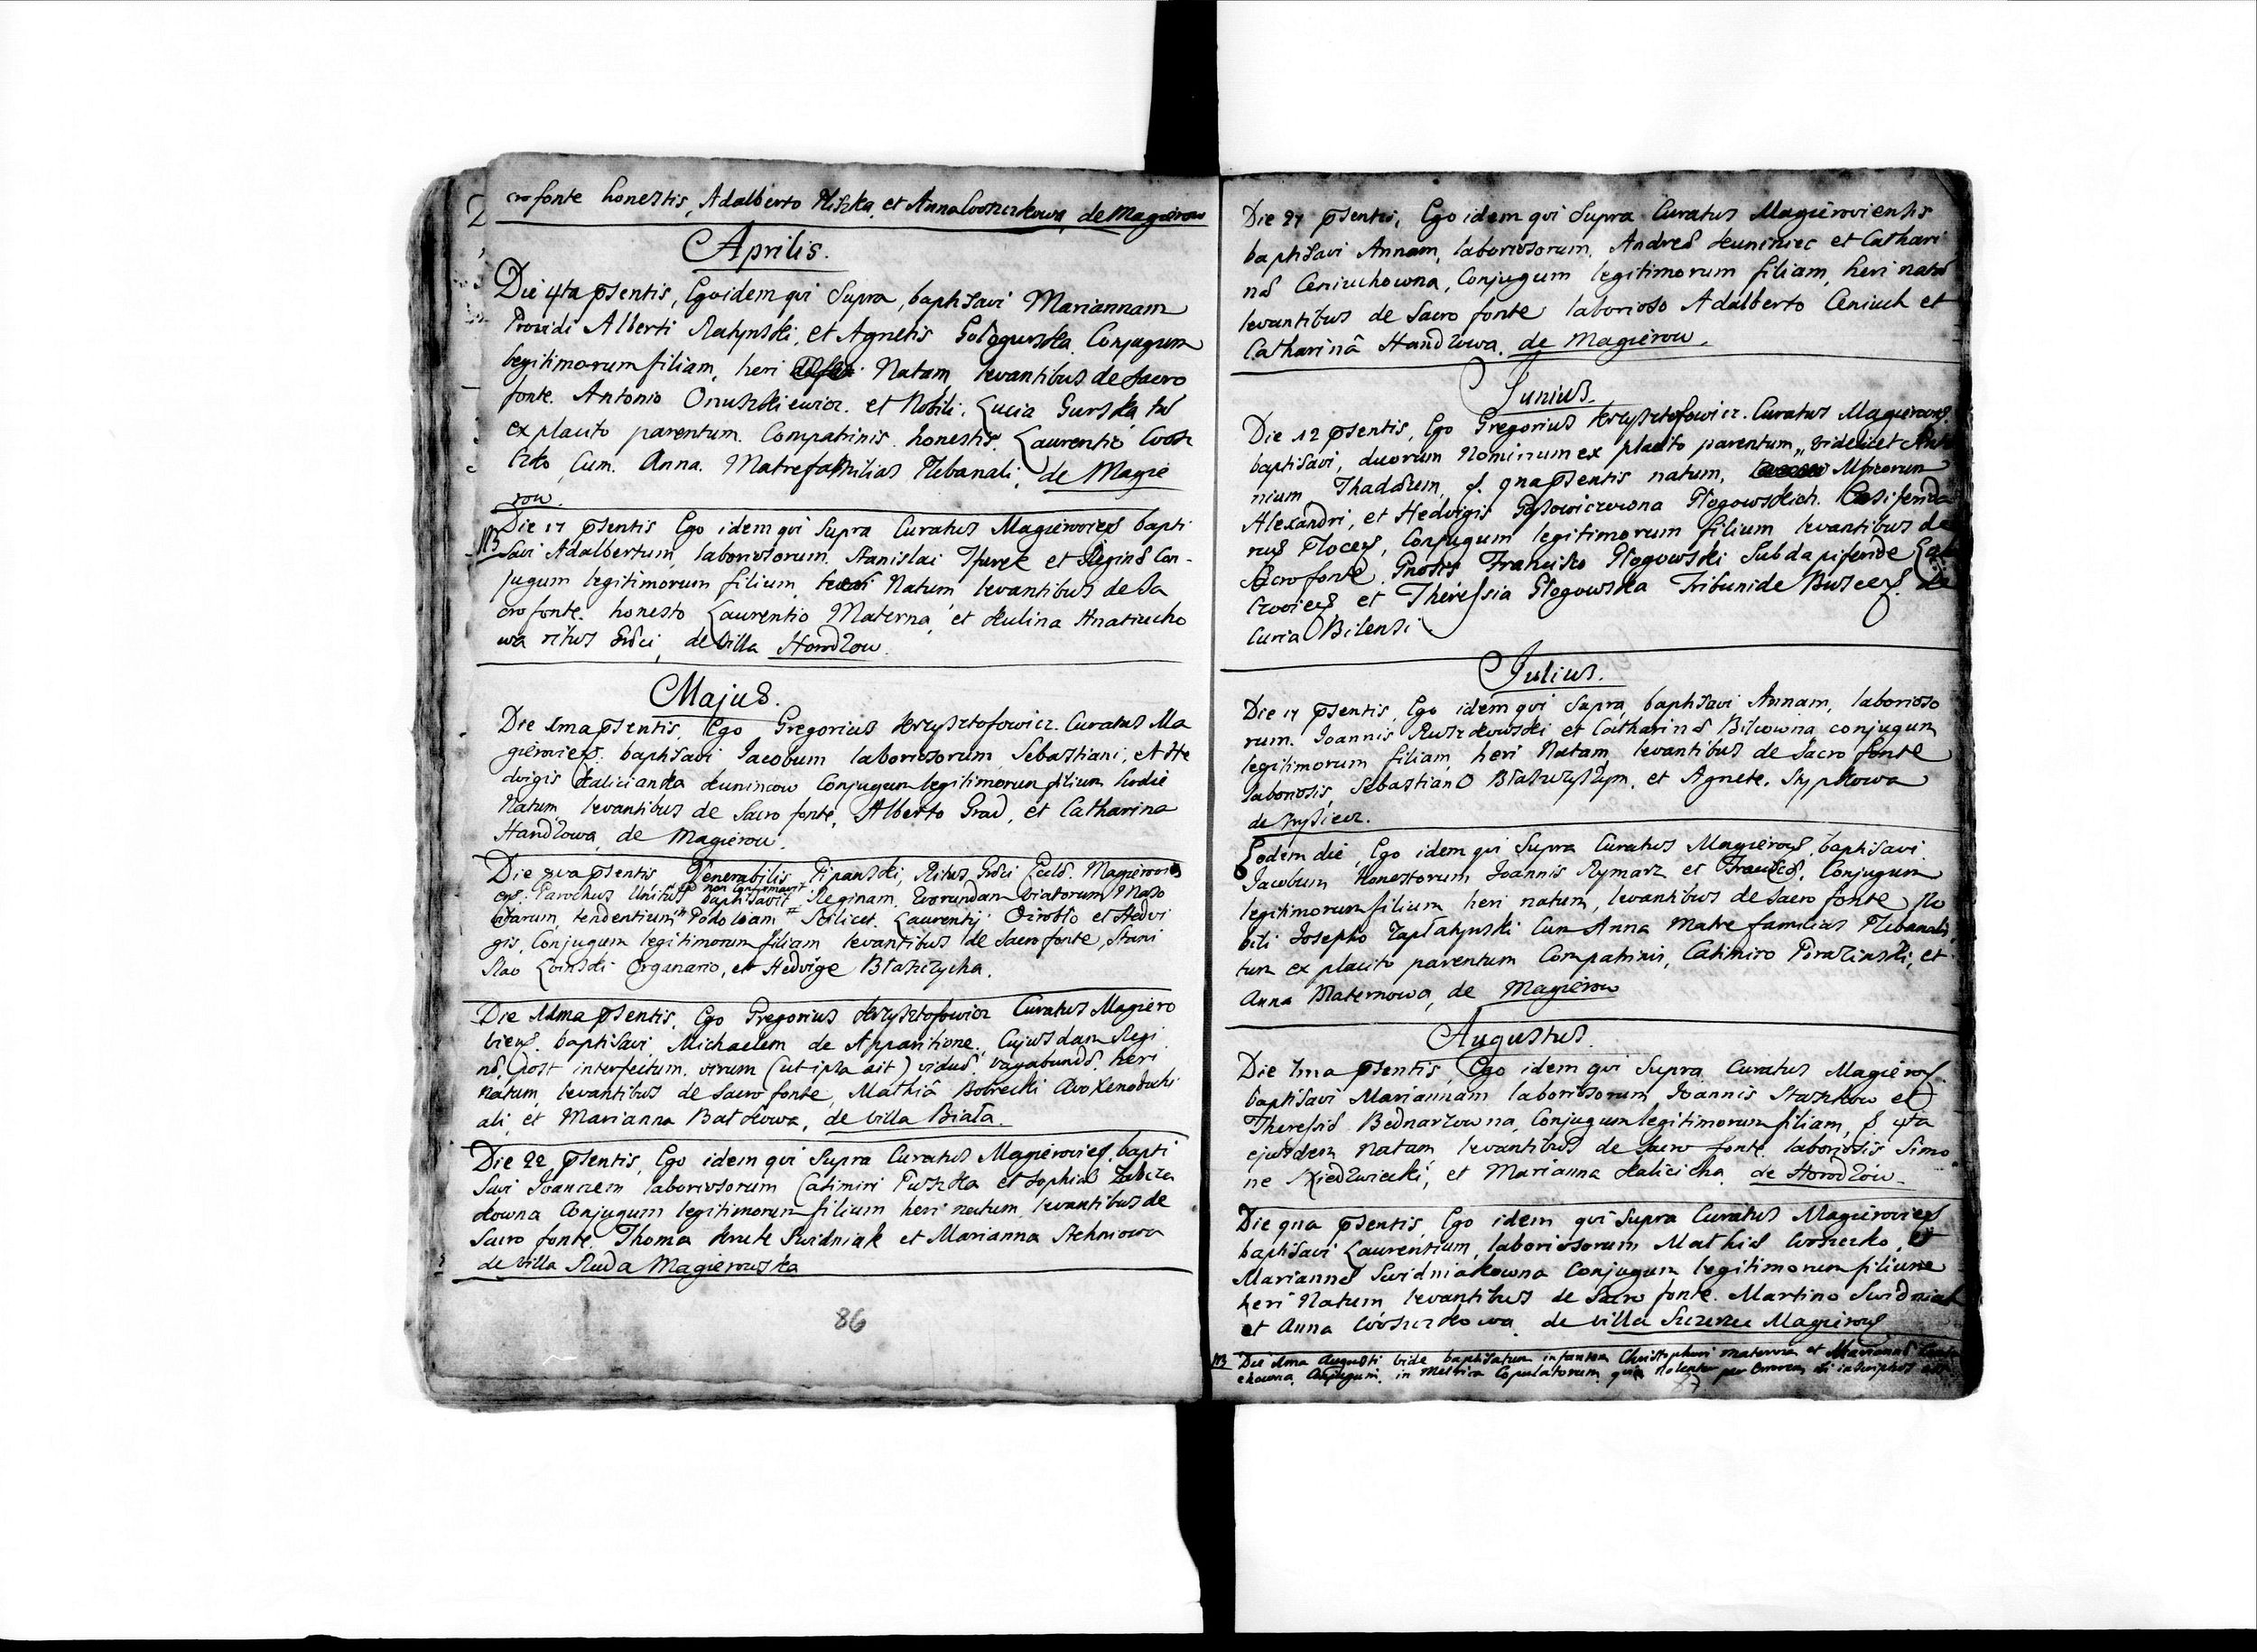 cro fonte honestis, Adalberto Kliszka, et Anna Woszczkowa, de Magierow
Aprilis.
Die 4ta psentis, Ego idem qui Supra, baptisavi Mariannam
Providi Alberti Ratynski, et Agnetis Gołogurska Conjugum
legitimorum filiam, heri Natam, levantibus de Sacro
fonte. Antonio Onuszkiewicz. et Nobili. Lucia Gurska,
ex placito parentum. Compatrinis. honestis. Laurentio Wosz
czko, Cum. Anna. Matrefamilias Plebanali, de Magie
row.
NB Die 17 psentis Ego idem qui Supra Curatus Magierovies bapti
savi Adalbertum, laboriosorum, Stanislai Turek et Reginæ Con-
jugum legitimorum filium, Natum levantibus de Sa
cro fonte. honesto Laurentio Materna, et Kulina Hnatiucho
wa ritus Græci, de Villa Horodzow.
Majus.
Die 1ma psentis, Ego Gregorius Krzysztofowicz. Curatus Ma
gierovies. baptisavi Jacobum laboriosorum Sebastiani, et He
dvigis Kalicianka Kunincow Conjugum legitimorum filium hodie
Natum, levantibus de Sacro fonte, Alberto Grad, et Catharina
Handzowa, de Magierow.
Die psentis Venerabilis Pipanski, Ritus Græci Ecclæ. Magierovi
ens. Parochus Unitus non Confirmavit baptisavit Reginam, quorundam viatorum Mazo
tarum, tendentium Podoliam Scilicet. Laurentij Oziobło et Hedvi
gis, Conjugum legitimorum filiam levantibus de Sacro fonte, Stani
slao Loinski Organario, et Hedvige Błaszczycha.
Die 11ma psentis, Ego Gregorius Krzysztofowicz Curatus Magiero
viens. baptisavi Michaelem de Apparitione, Cujusdam Regi
næ, (post interfectum. virum (ut ipsa ait) viduæ. vagabundæ. heri
natum, levantibus de Sacro fonte, Mathiâ Bobrecki Avo Xenodochi
ali, et Marianna Batkowa, de Villa Biała.
Die 22 psentis, Ego idem qui Supra Curatus Magierovies, bapti
savi Joannem laboriosorum Casimiri Puszka et Sophiæ Zabcza
kowna Conjugum legitimorum filium heri natum, levantibus de
Sacro fonte, Thoma Swidniak et Marianna Stehniowa
de Villa Ruda Magierowska
86
Die 27 psentis, Ego idem qui Supra Curatus Magieroviensis
baptisavi Annam, laboriosorum, Andreæ Kuniniec et Cathari
næ Ceniuchowna, Conjugum legitimorum filiam, heri natæ
levantibus de Sacro fonte laborioso Adalberto Ceniuch et
Catharinâ Handzowa, de Magierow.
Junius.
Die 12 psentis, Ego Gregorius Krzysztofowicz. Curatus Magierovies.
baptisavi, duorum Nominum ex placito parentum, videlicet Anto
nium Thaddæum, psentis natum,
Alexandri, et Hedvigis Głogowskich.
Conjugum legitimorum filium levantibus de
Sacro fonte, Francisko Głogowski Subdapiferide
et Theressia Głogowska Tribunide Busces. de
Curia Bilensi
Julius.
Die 17 psentis, Ego idem qui Supra, baptisavi Annam, laborioso
rum. Joannis Ruszkowski et Catharinæ Bilcowna, conjugum
legitimorum filiam, heri Natam, levantibus de Sacro fonte
laboriosis, Sebastiano Błaszczyszym, et Agnete, Sypkowa
de
Eodem die, Ego idem qui Supra Curatus Magierovs. baptisavi
Jacobum Honestorum Joannis Rymarz et Conjugum
legitimorum filium heri natum, levantibus de Sacro fonte, No
bili Josepho Zapłatynski Cum Anna Matre familias Plebanali,
tum ex placito parentum Compatrinis, Casimiro Porazinski, et
Anna Maternowa, de Magierow
Augustus.
Die 7ma psentis, Ego idem qui Supra Curatus Magierovs.
baptisavi Mariannam laboriosorum, Joannis Staszkow et
Theressiæ Bednarzowna, Conjugum legitimorum filiam, 4ta
ejusdem Natam levantibus de Sacro fonte. laboriosis Simo
ne Niedzwiecki, et Marianna Kalicicha, de Horodzow.
Die 9na psentis, Ego idem qui Supra Curatus Magierovies
baptisavi Laurentium, laboriosorum Mathiæ Woszczko, et
Mariannæ Swidniakowna Conjugum legitimorum filium
heri Natum, levantibus de Sacro fonte. Martino Swidniak
et Anna Woszczkowa, de Villa Szczerzec Magierovs
NB Die 1ma Augusti vide baptisatum infantem Christophori Materna et Mariannæ
Conjugum. in Metrica Copulatorum quia per Errorem
87